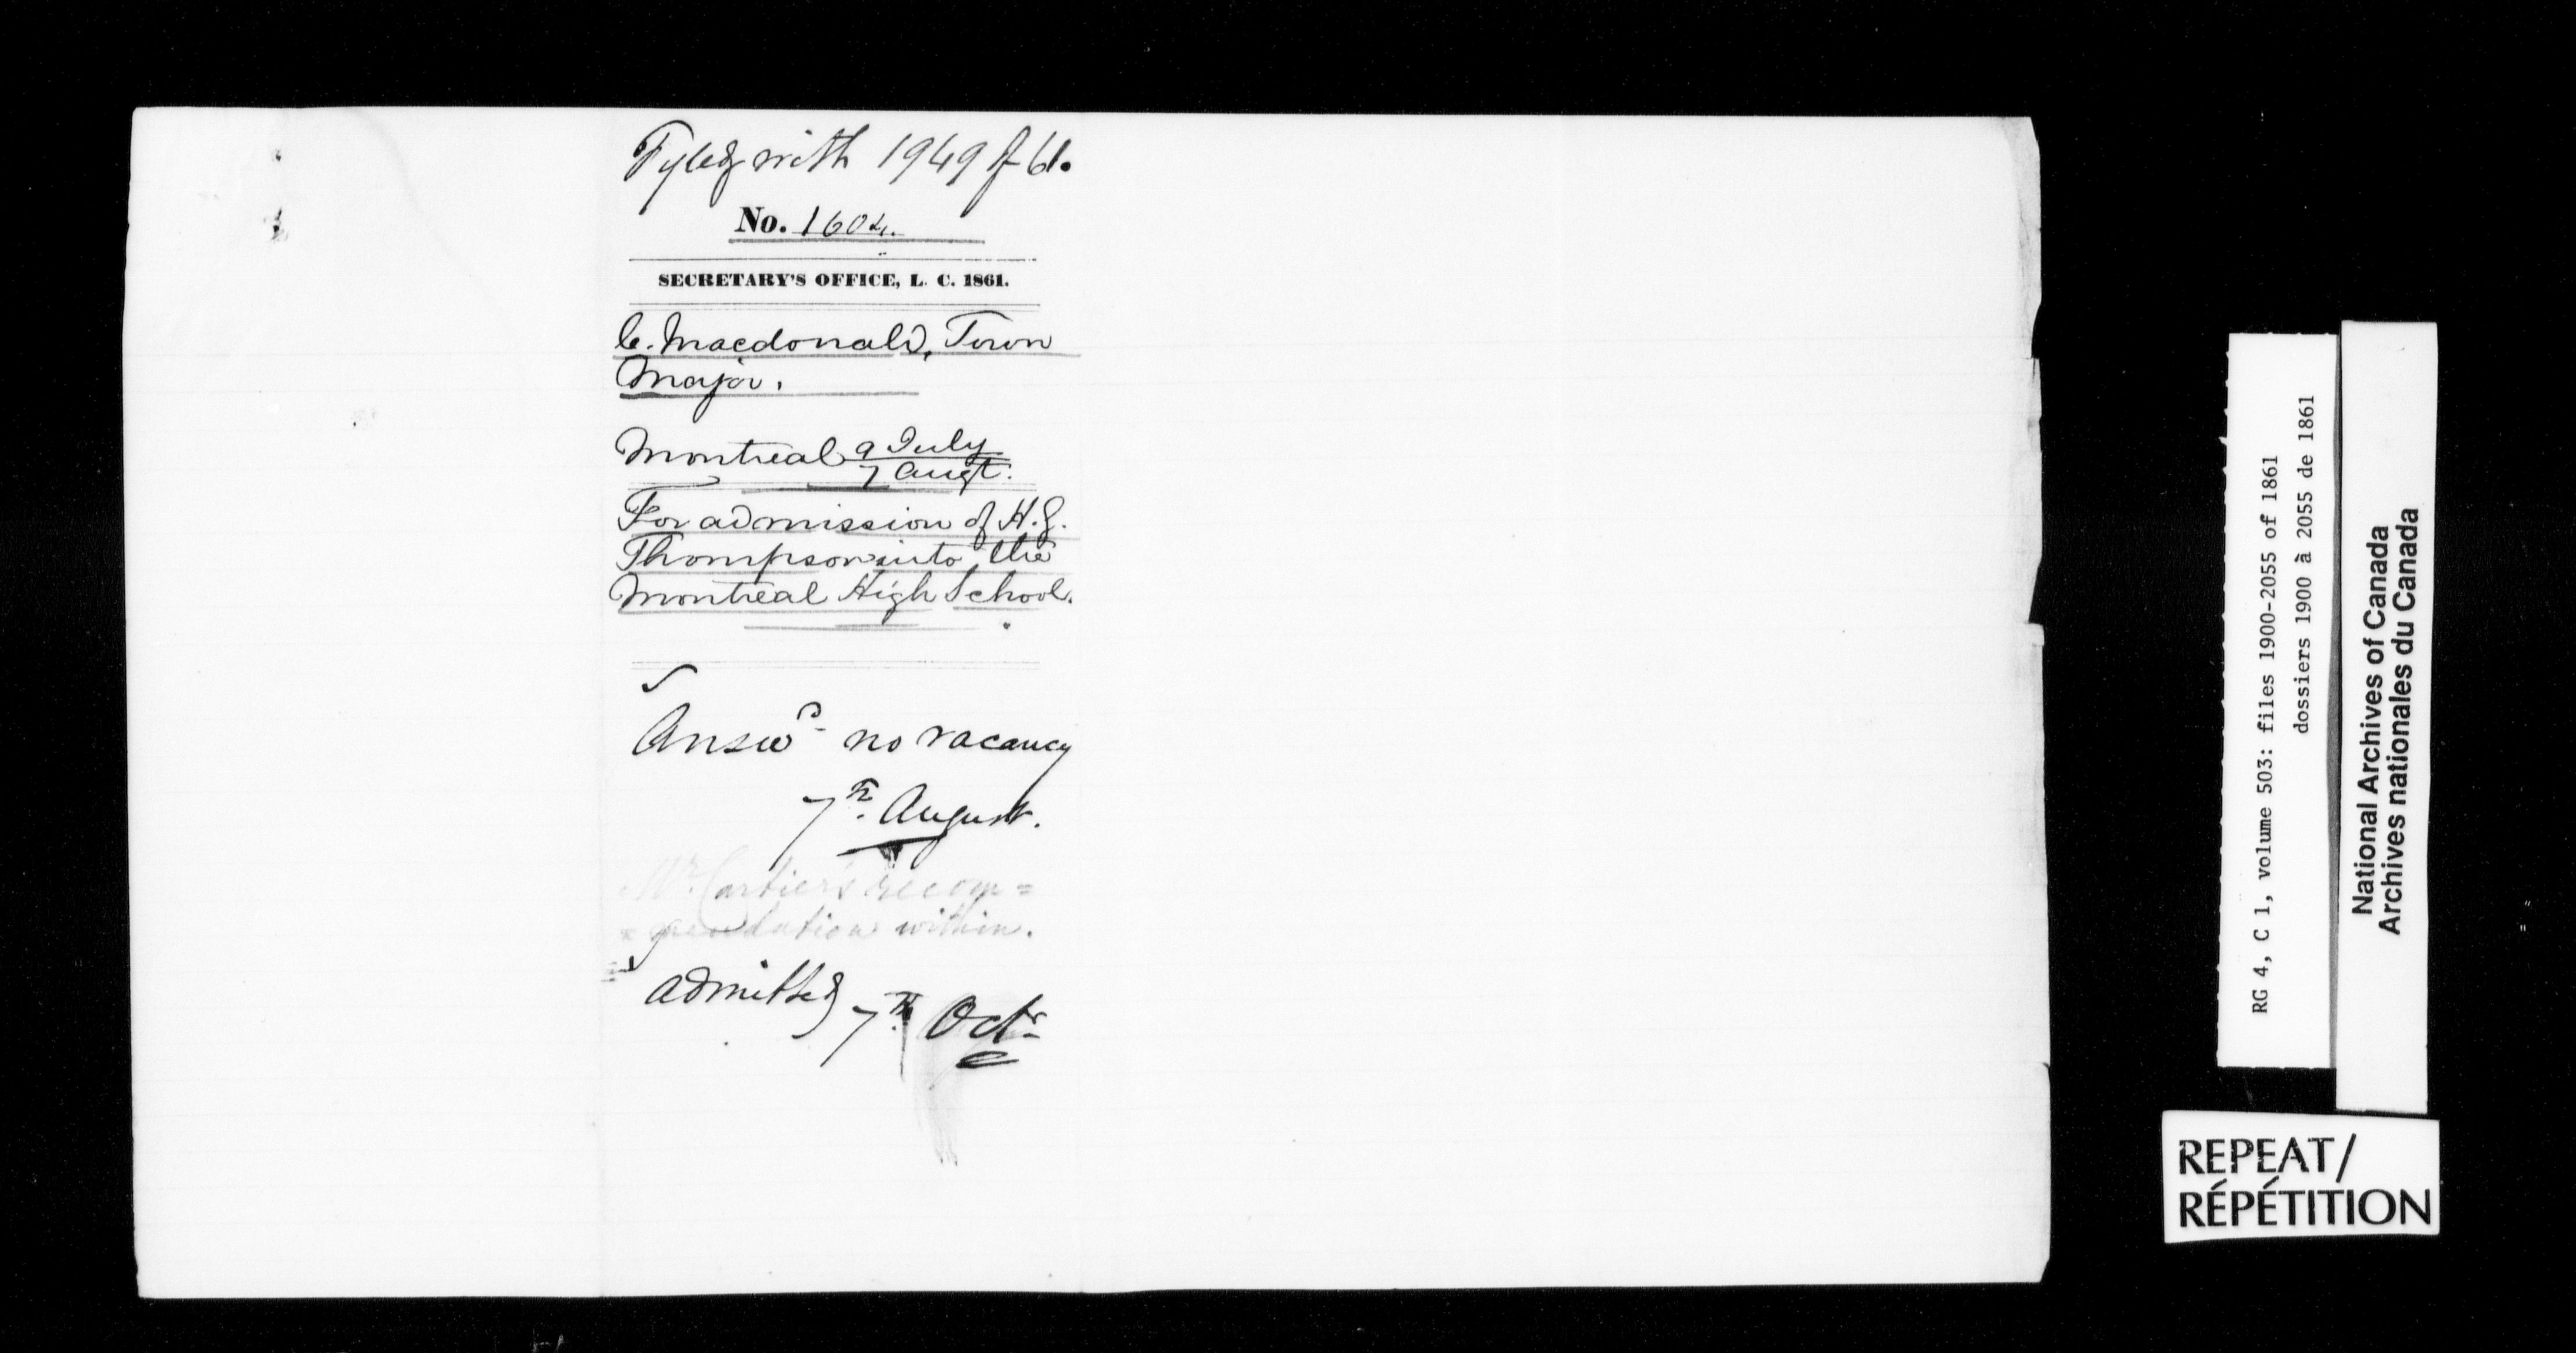 Fyled with 1949 of 61.
No. 1604.
SECRETARY'S OFFICE, L. C. 1861.
C. Macdonald, Town
Major.
Montreal 9 July
7 Augt.
For admission of H.G.
Thompson into the
Montreal High School.
Answd no vacancy
7th August.
Mr. Cartier's recom=
=mendation within.
admitted 7th Octr
RG 4, C 1, volume 503: files 1900-2055 of 1861
dossiers 1900 à 2055 de 1861
National Archives of Canada
Archives nationales du Canada
REPEAT/
RÉPÉTITION